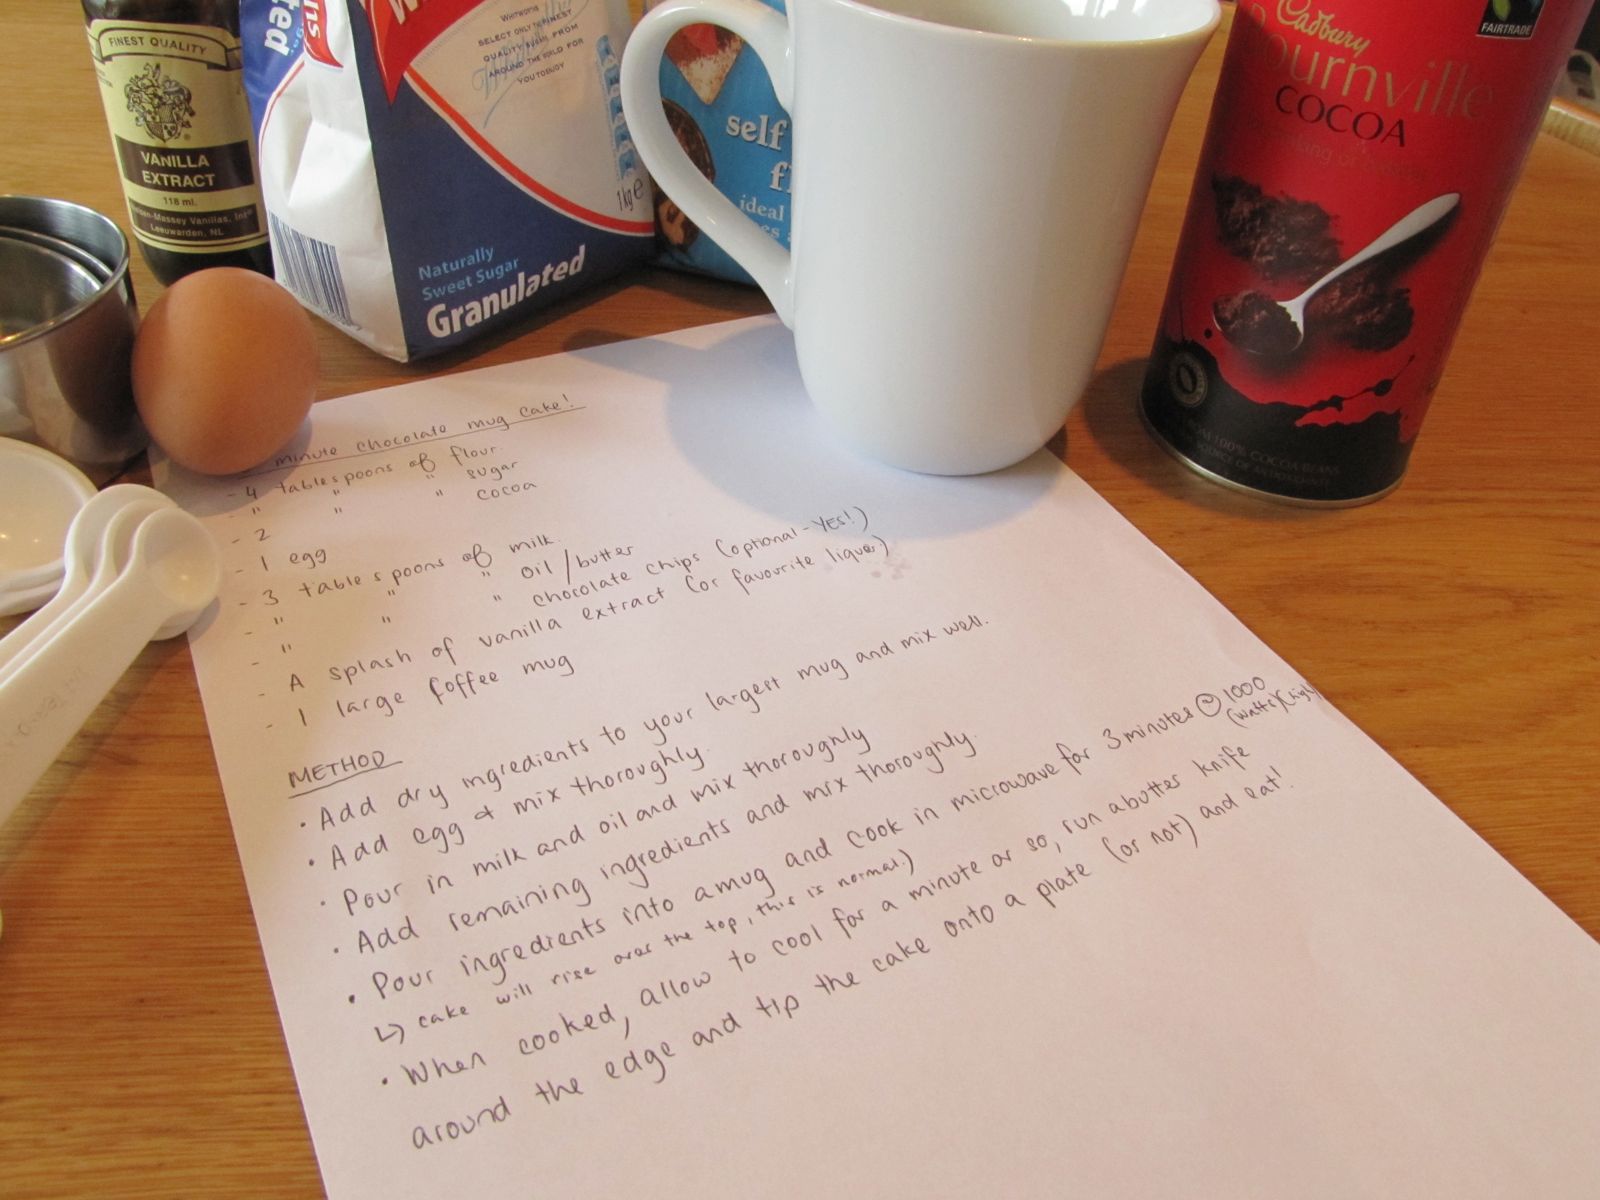 FINEST QUALITY
VANILLA
EXTRACT
118 ml.
Leeuwarden, NL
WHITWORTHS
SELECT ONLY THE FINEST
QUALITY SUGARS FROM
AROUND THE WORLD FOR
YOU TO ENJOY
1kg e
Naturally
Sweet Sugar
Granulated
self
ideal
Cadbury
Bournville
COCOA
FAIRTRADE
100% COCOA BEANS
SOURCE OF ANTIOXIDANTS
minute chocolate mug cake!
- 4 tablespoons of flour.
- " " " sugar
- 2 " " cocoa
- 1 egg
- 3 tablespoons of milk.
- " " " oil/butter
- " " " chocolate chips (optional - YES!)
- A splash of vanilla extract (or favourite liquer)
- 1 large foffee mug
METHOD
• Add dry ingredients to your largest mug and mix well.
• Add egg & mix thoroughly.
• Pour in milk and oil and mix thoroughly
• Add remaining ingredients and mix thoroughly.
• Pour ingredients into a mug and cook in microwave for 3 minutes @ 1000 (watts)(high)
↳ cake will rise over the top, this is normal.)
• When cooked, allow to cool for a minute or so, run a butter knife
around the edge and tip the cake onto a plate (or not) and eat!